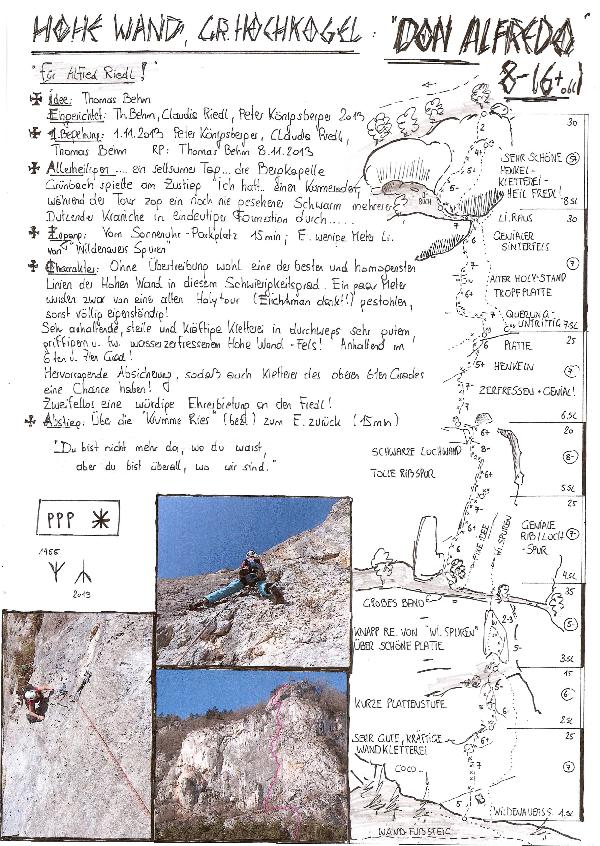 HOHE WAND, GR. HOCHKOGEL: "DON ALFREDO"
8-/6+ obl.
"für Alfred Riedl!"
Idee: Thomas Behm
Eingerichtet: Th. Behm, Claudia Riedl, Peter Königsberger 2013
1. Begehung: 1.11.2013 Peter Königsberger, Claudia Riedl,
Thomas Behm RP: Thomas Behm 8.11.2013
Allerheiligen .... ein seltsamer Tag... die Bergkapelle
Grünbach spielte am Zustieg "Ich hatt einen Kameraden",
während der Tour zog ein noch nie gesehener Schwarm mehrerer
Dutzender Kraniche in eindeutiger Formation durch.....
Zugang: Vom Sonnenuhr-Parkplatz 15min; E. wenige Meter li.
von "Wildenauer Spuren"
Charakter: Ohne Übertreibung wohl eine der besten und homogensten
Linien der Hohen Wand in diesem Schwierigkeitsgrad. Ein paar Meter
wurden zwar von einer alten Holytour (Elichäman denk!!) gestohlen,
sonst völlig eigenständig!
Sehr anhaltende, steile und kräftige Kletterei in durchwegs sehr gutem,
griffigen u. tw. wasserzerfressenen Hohe Wand - Fels! Anhaltend im
6ten u. 7ten Grad!
Hervorragende Absicherung, sodaß auch Kletterer des oberen 6ten Grades
eine Chance haben!
Zweifellos eine würdige Ehrerbietung an den Fredl!
Abstieg: Über die "Krumme Ries" (bez.) zum E. zurück (15min)
"Du bist nicht mehr da, wo du warst,
aber du bist überall, wo wir sind."
PPP
1966
2013
30
SEHR SCHÖNE
HENKEL-
KLETTEREI -
HEIL FREDL!
7
8.SL
BUCH
LI. RAUS
30
GENIALER
SINTERFELS
7
ALTER HOLY-STAND
TROPFPLATTE
QUERUNG -
UNTRITTIG
7.SL
PLATTE
25
HENKELN
7
ZERFRESSEN - GENIAL!
6.SL
20
SCHWARZE LOCHWAND
8-
TOLLE RISSPUR
5.SL
25
WI. SPUREN
GENIALE
RIß/LOCH-
SPUR
7
4.SL
GROßES BAND
35
5-
KNAPP RE. VON "WI. SPUREN"
ÜBER SCHÖNE PLATTE
3.SL
15
KURZE PLATTENSTUFE
6-
2.SL
SEHR GUTE, KRÄFTIGE
WANDKLETTEREI
25
7
COCO
WILDENAUERS.
1.SL
WANDFUßSTEIG